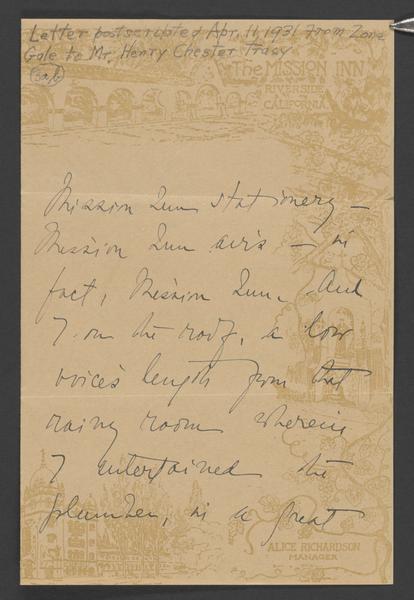 Letter postscripted Apr. 11, 1931 from Zona
Gale to Mr. Henry Chester Tracy
The MISSION INN
RIVERSIDE
CALIFORNIA
Mission Inn stationery –
Mission Inn airs – in
fact, Mission Inn. And
I on the roof, a low
voice's length from that
rainy room wherein
I entertained the
plumber, in a great
ALICE RICHARDSON
MANAGER